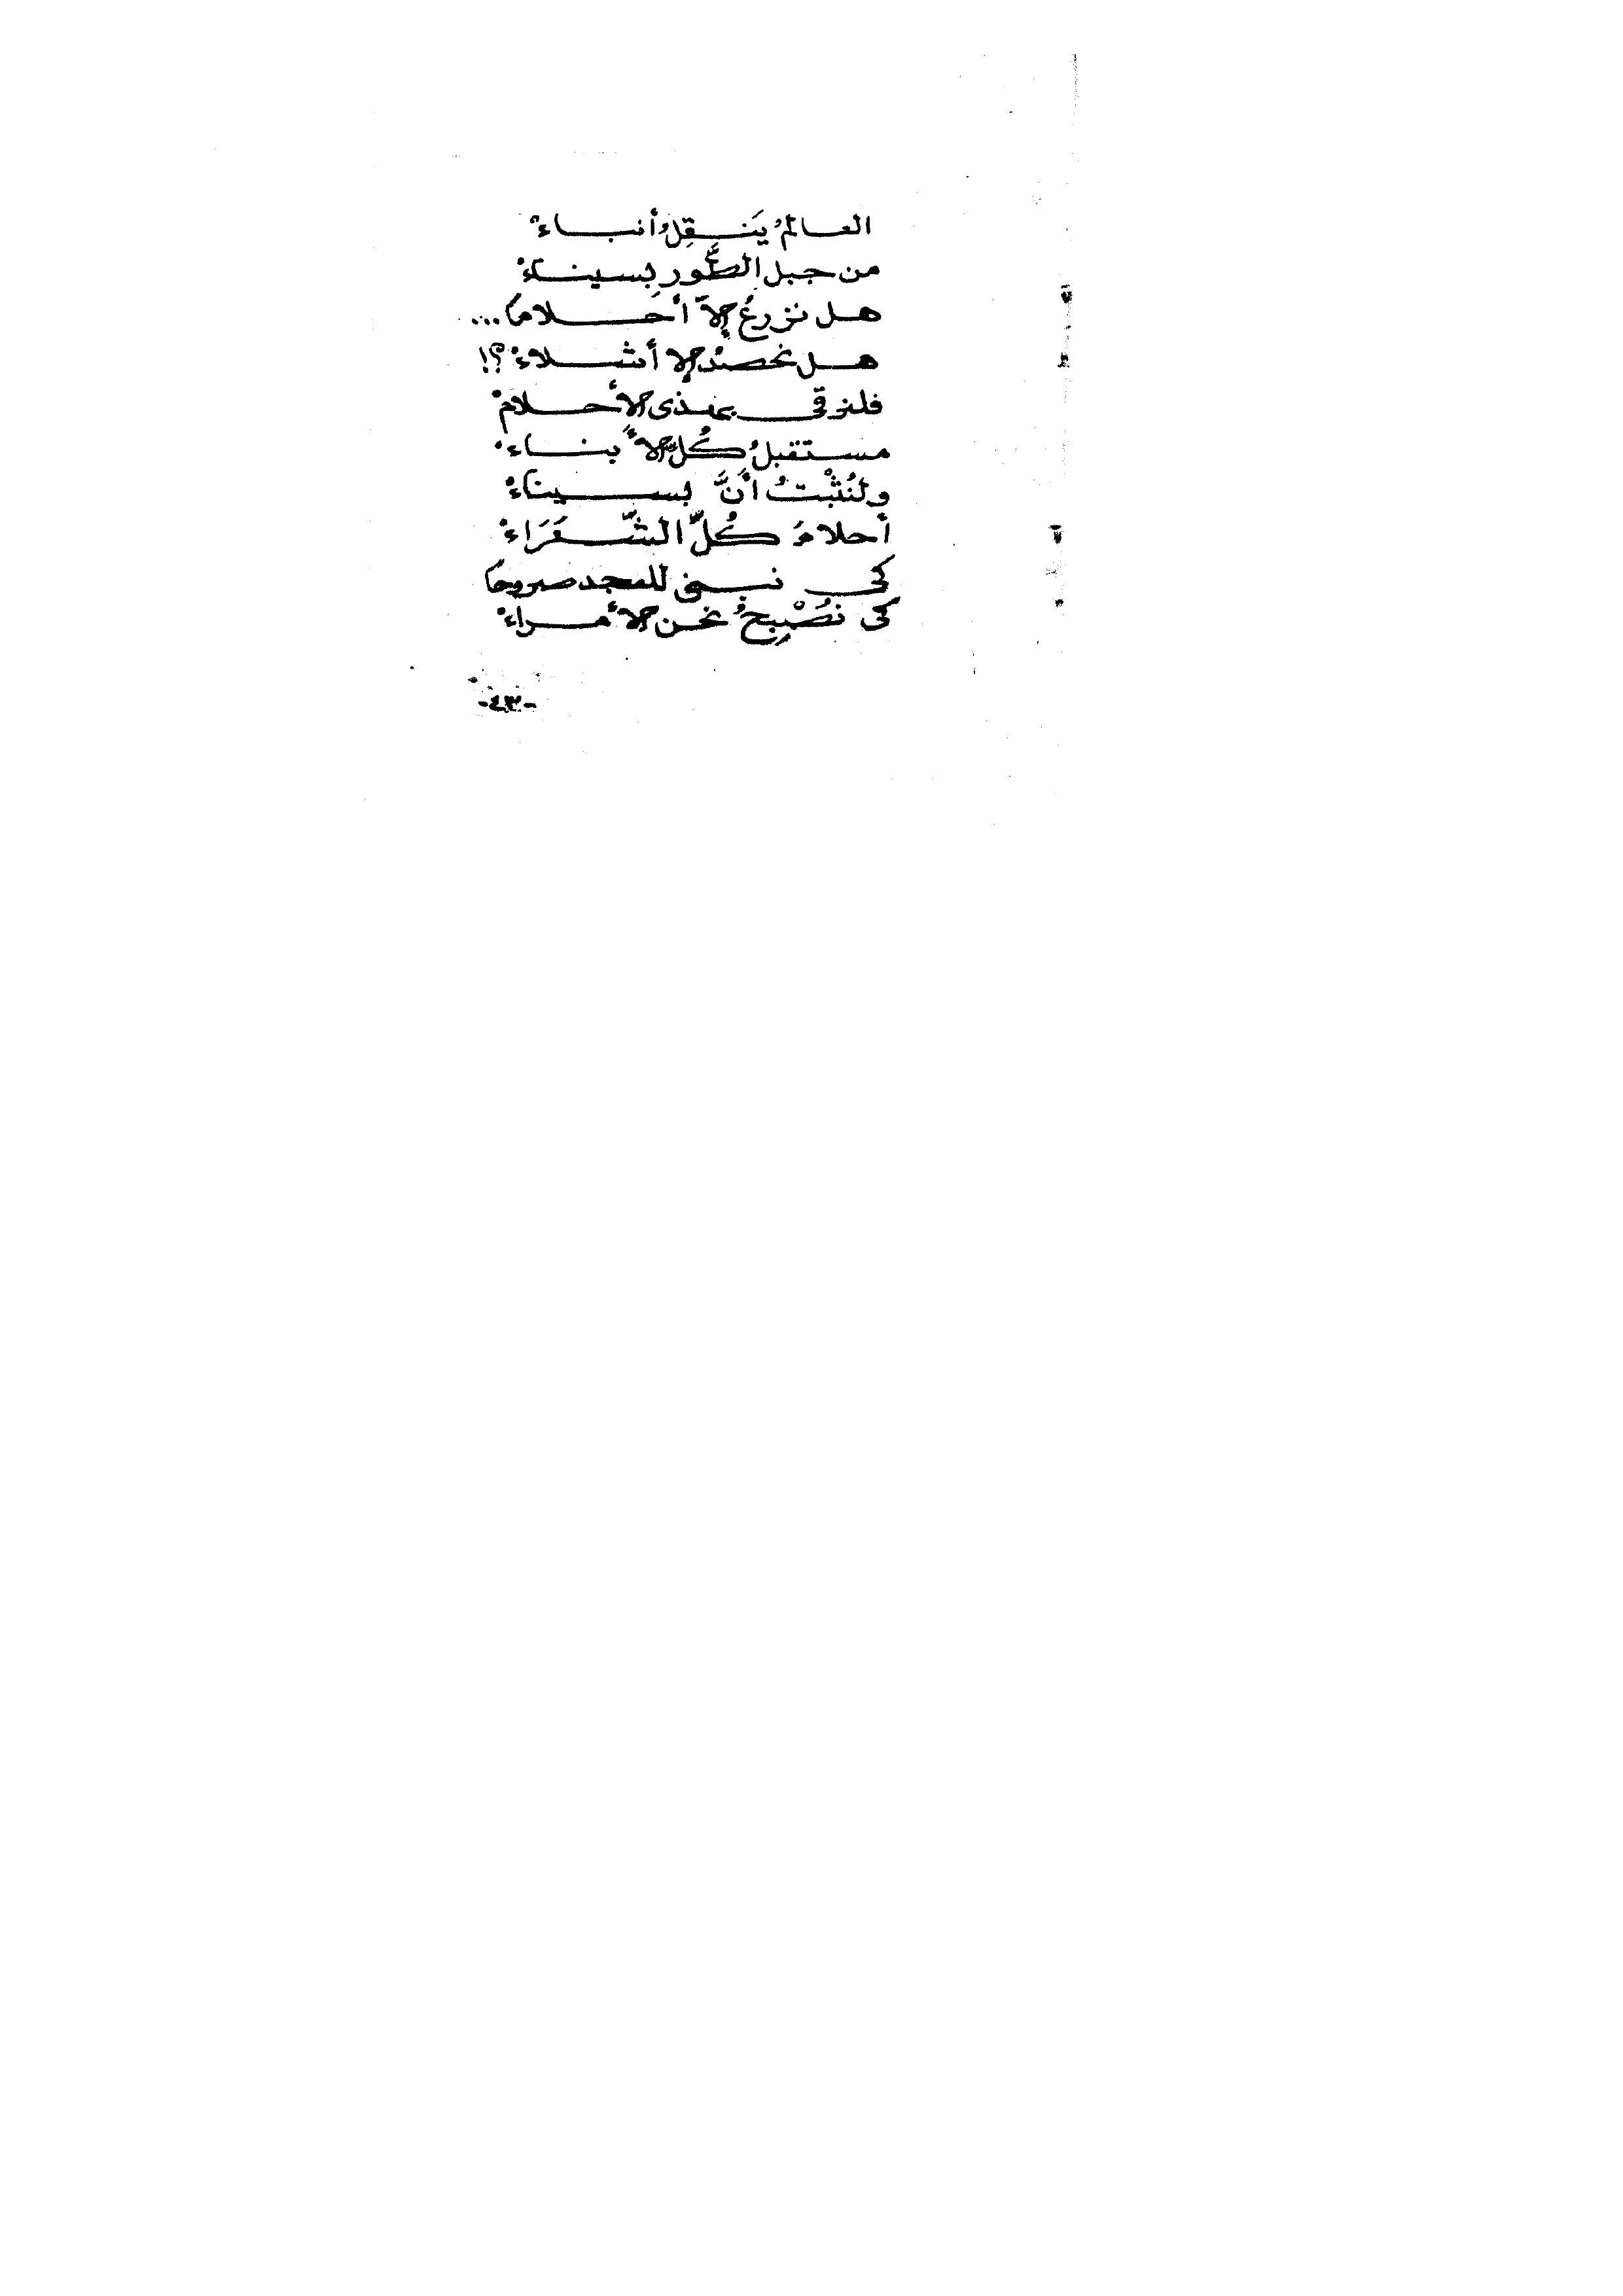 العالمُ يَنقِلُ أنباءْ
من جبل الطُّورِ بسيناءْ
هل نزرعُ إلاَّ أحَلاما ...
هل نحصدْ إلا أشلاءْ ؟!
فلنرقى بهذى الأحلامْ
مستقبلُ كُلِّ الأَبناءْ
ولنُثْبتُ أنَّ بسيناءْ
أحلامَ كُلِّ الشُّعَرَاءْ
كى نبنى للمجد صروحًا
كى نُصْبِحُ نحن الأُمراءْ
-٤٣-